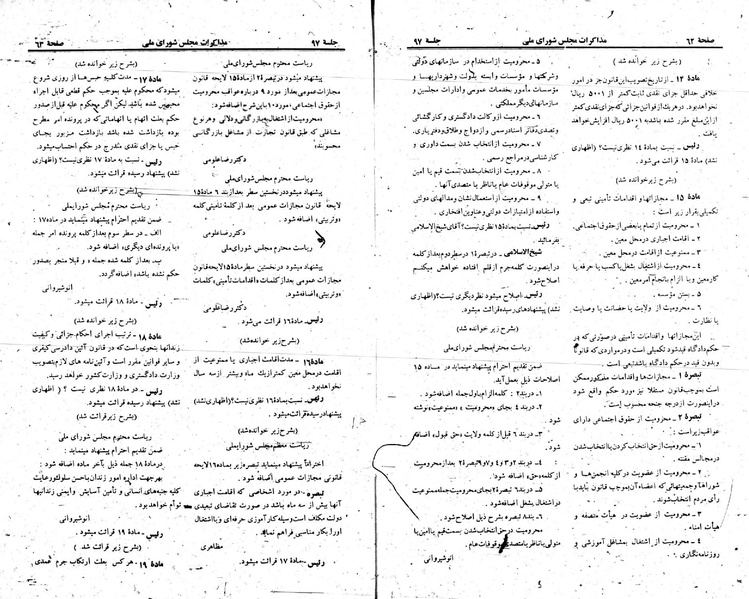 صفحهٔ ۶۲
مذاکرات مجلس شورای ملی
جلسهٔ ۹۷
(بشرح زیر خوانده شد)
مادهٔ ۱۴ ـ از تاریخ تصویب این قانون جز در امور
خلافی حداقل جزای نقدی ثابت کمتر از ۵۰۰۱ ریال
نخواهد بود. در هر یک از قوانین جزائی که جزای نقدی کمتر
از این مبلغ مقرر شده باشد به ۵۰۰۱ ریال افزایش خواهد
یافت.
رئیس ـ نسبت بمادهٔ ۱۴ نظری نیست؟ (اظهاری
نشد) مادهٔ ۱۵ قرائت می‌شود.
(بشرح زیر خوانده شد)
مادهٔ ۱۵ ـ مجازاتها و اقدامات تأمینی تبعی و
تکمیلی بقرار زیر است:
۱ ـ محرومیت از تمام یا بعضی از حقوق اجتماعی.
۲ ـ اقامت اجباری در محل معین.
۳ ـ ممنوعیت از اقامت در محل معین.
۴ ـ محرومیت از اشتغال بشغل یا کسب یا حرفه یا
کار معین و یا الزام بانجام امر معین.
۵ ـ بستن مؤسسه.
۶ ـ محرومیت از ولایت یا حضانت یا وصایت
یا نظارت.
این مجازاتها و اقدامات تأمینی در صورتی که در
حکم دادگاه قید شود تکمیلی است و در مواردی که قانوناً
بدون قید در حکم دادگاه باشد تبعی است.
تبصرهٔ ۱ ـ مجازات‌ها و اقدامات مذکور ممکن
است بموجب قانون مستقلا نیز مورد حکم واقع شود
در اینصورت از درجه جنحه محسوب است.
تبصرهٔ ۲ ـ محرومیت از حقوق اجتماعی دارای
عواقب زیر است:
۱ ـ محرومیت از حق انتخاب کردن یا انتخاب شدن
در مجالس مقننه.
۲ ـ محرومیت از عضویت در کلیه انجمن‌ها و
شوراها و جمعیتهائی که اعضاء آن بموجب قانون باید با
رأی مردم انتخاب شوند.
۳ ـ محرومیت از عضویت در هیأت منصفه و
هیأت امناء.
۴ ـ محرومیت از اشتغال بمشاغل آموزشی و
روزنامه‌نگاری.
۵ ـ محرومیت از استخدام در سازمانهای دولتی
و شرکتها و مؤسسات وابسته بدولت و شهرداریها و
مؤسسات مأمور بخدمات عمومی و ادارات مجلسین و
سازمانهای دیگر مملکتی.
۶ ـ محرومیت از وکالت دادگستری و کارگشائی
و تصدی دفاتر اسناد رسمی و ازدواج و طلاق و دفتریاری.
۷ ـ محرومیت از انتخاب شدن بسمت داوری و
کارشناسی در مراجع رسمی.
۸ ـ محرومیت از انتخاب شدن بسمت قیم یا امین
یا متولی موقوفات عام یا ناظر یا متصدی آنها.
۹ ـ محرومیت از استعمال نشان و مدالهای دولتی
و استفاده از امتیازات دولتی و عناوین افتخاری.
رئیس ـ نسبت بماده ۱۵ نظری نیست؟ آقای شیخ‌الاسلامی
بفرمائید.
شیخ‌الاسلامی ـ در تبصره ۱ در سطر دوم بعد از کلمه
در اینصورت کلمه جرم از قلم افتاده خواهش میکنم
اصلاح شود.
رئیس ـ اصلاح میشود نظر دیگری نیست؟ (اظهاری
نشد) پیشنهادهای رسیده قرائت میشود.
(بشرح زیر خوانده شد)
ریاست محترم مجلس شورای ملی
ضمن تقدیم احترام پیشنهاد مینماید در ماده ۱۵
اصلاحات ذیل بعمل آید.
۱ ـ در بند ۲: کلمه الزام باول جمله اضافه شود.
۲ ـ در بند ۴ بجای محرومیت، ممنوعیت نوشته
شود.
۳ ـ در بند ۶ قبل از کلمه ولایت «حق قبول» اضافه
شود.
۴ ـ در بند ۲ و ۳ و ۴ و ۷ و ۹ تبصره ۲ بعد از محرومیت
از کلمه «حق» اضافه شود.
۵ ـ در بند ۶ تبصره ۲ بجای محرومیت جمله ممنوعیت
در اشتغال بشغل اضافه شود.
۶ ـ بند ۸ تبصره بشرح ذیل اصلاح شود.
محرومیت در حق انتخاب شدن بسمت قیم یا امین یا
متولی یا ناظر یا متصدی موقوفات عام.
انوشیروانی
جلسهٔ ۹۷
مذاکرات مجلس شورای ملی
صفحهٔ ۶۳
ریاست محترم مجلس شورای ملی
پیشنهاد میشود در تبصره ۲ از ماده ۱۵ لایحه قانون
مجازات عمومی بعد از مورد ۹ درباره عواقب محرومیت
از حقوق اجتماعی، مورد ۱۰ باین شرح اضافه شود:
«محرومیت از اشتغال ببازرگانی و دلالی و هر نوع
مشاغلی که طبق قانون تجارت از مشاغل بازرگانی
محسوبند»
دکتر رضا علومی
ریاست محترم مجلس شورای ملی
پیشنهاد میشود در نخستین سطر بعد از بند ۶ مادهٔ ۱۵
لایحه قانون مجازات عمومی بعد از کلمهٔ تأمینی کلمه
«و تربیتی» اضافه شود.
دکتر رضا علومی
ریاست محترم مجلس شورای ملی
پیشنهاد میشود در نخستین سطر مادهٔ ۱۵ لایحه قانون
مجازات عمومی بعد از کلمات «اقدامات تأمینی» کلمات
«و تربیتی» اضافه شود.
دکتر رضا علومی
رئیس ـ مادهٔ ۱۶ قرائت می‌شود.
(بشرح زیر خوانده شد)
مادهٔ ۱۶ ـ مدت اقامت اجباری یا ممنوعیت از
اقامت در محل معین کمتر از یک ماه و بیشتر از سه سال
نخواهد بود.
رئیس ـ نسبت بماده ۱۶ نظری نیست؟ (اظهاری نشد)
پیشنهاد رسیده قرائت میشود.
(بشرح زیر خوانده شد)
ریاست معظم مجلس شورای ملی
احتراماً پیشنهاد مینماید تبصره زیر بماده ۱۶ لایحه
قانونی مجازات عمومی اضافه شود.
تبصره ـ در مورد اشخاصی که اقامت اجباری
آنها بیش از سه ماه باشد در صورت تقاضای تبعیدی
دولت مکلف است وسیله کارآموزی حرفه‌ای و یا اشتغال
او را بکار مناسبی فراهم نماید.
مظاهری
رئیس ـ مادهٔ ۱۷ قرائت میشود.
(بشرح زیر خوانده شد)
مادهٔ ۱۷ ـ مدت کلیه حبس‌ها از روزی شروع
میشود که محکوم علیه بموجب حکم قطعی قابل اجراء
محبوس شده باشد لیکن اگر محکوم علیه قبل از صدور
حکم بعلت اتهام یا اتهاماتی که در پرونده امر مطرح
بوده بازداشت شده باشد بازداشت مزبور بجای
حبس یا جزای نقدی مندرج در حکم احتساب میشود.
رئیس ـ نسبت به مادهٔ ۱۷ نظری نیست؟ (اظهاری
نشد) پیشنهاد رسیده قرائت میشود.
(بشرح زیر خوانده شد)
ریاست محترم مجلس شورایملی
ضمن تقدیم احترام پیشنهاد مینماید در ماده ۱۷:
الف ـ در سطر سوم بعد از کلمه پرونده امر جمله
«یا پرونده‌ای دیگری» اضافه شود.
ب ـ بعد از کلمه شده جمله، و قبلا منجر بصدور
حکم نشده باشد، اضافه گردد.
انوشیروانی
رئیس ـ مادهٔ ۱۸ قرائت میشود.
(بشرح زیر خوانده شد)
مادهٔ ۱۸ ـ ترتیب اجرای احکام جزائی و کیفیت
زندانها بنحوی است که در قانون آئین دادرسی کیفری
و سایر قوانین مقرر است و آئین‌نامه های لازم بتصویب
وزارت دادگستری و وزارت کشور خواهد رسید.
رئیس ـ در مادهٔ ۱۸ نظری نیست؟ (اظهاری
نشد) پیشنهاد رسیده قرائت میشود.
(بشرح زیر قرائت شد)
ریاست محترم مجلس شورای ملی
ضمن تقدیم احترام پیشنهاد مینماید:
در مادهٔ ۱۸ جمله ذیل بآخر ماده اضافه شود.
بهرجهت اداره امور زندان باحسن سلوک ورعایت
کلیه جنبه‌های انسانی و تأمین آسایش و ایمنی زندانیها
توأم خواهد بود.
انوشیروانی
رئیس ـ مادهٔ ۱۹ قرائت میشود.
(بشرح زیر قرائت شد)
مادهٔ ۱۹ ـ هر کس بعلت ارتکاب جرم عمدی